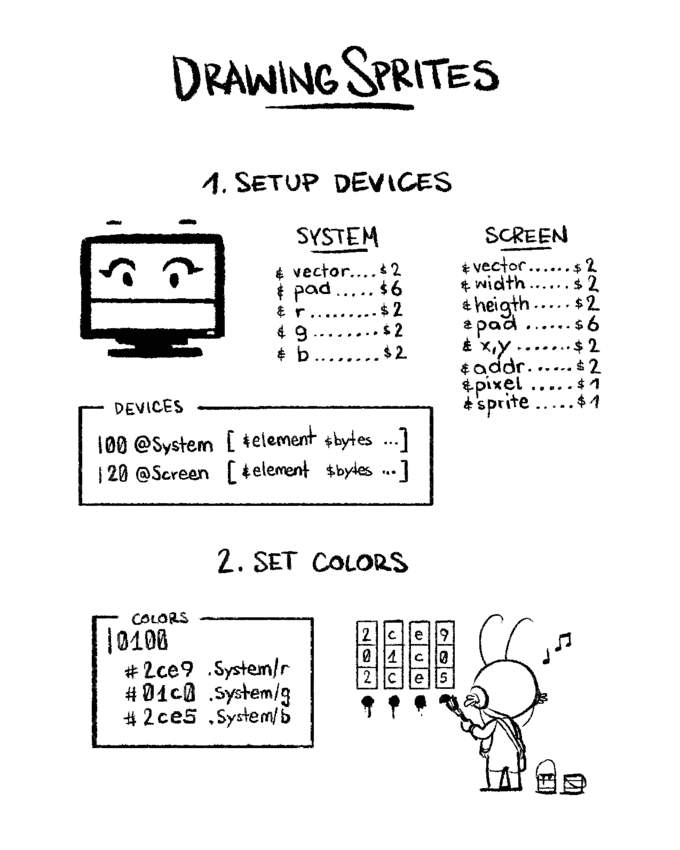 DRAWING SPRITES
1. SETUP DEVICES
SYSTEM
& vector....$2
& pad.....$6
& r.........$2
& g........$2
& b........$2
SCREEN
& vector......$2
& width......$2
& heigth.....$2
& pad ......$6
& x,y .......$2
& addr......$2
& pixel .....$1
& sprite .....$1
DEVICES
|00 @System [ &element $bytes ...]
|20 @Screen [ &element $bytes ...]
2. SET COLORS
COLORS
|0100
#2ce9 .System/r
#01c0 .System/g
#2ce5 .System/b
2 c e 9
0 1 c 0
2 c e 5